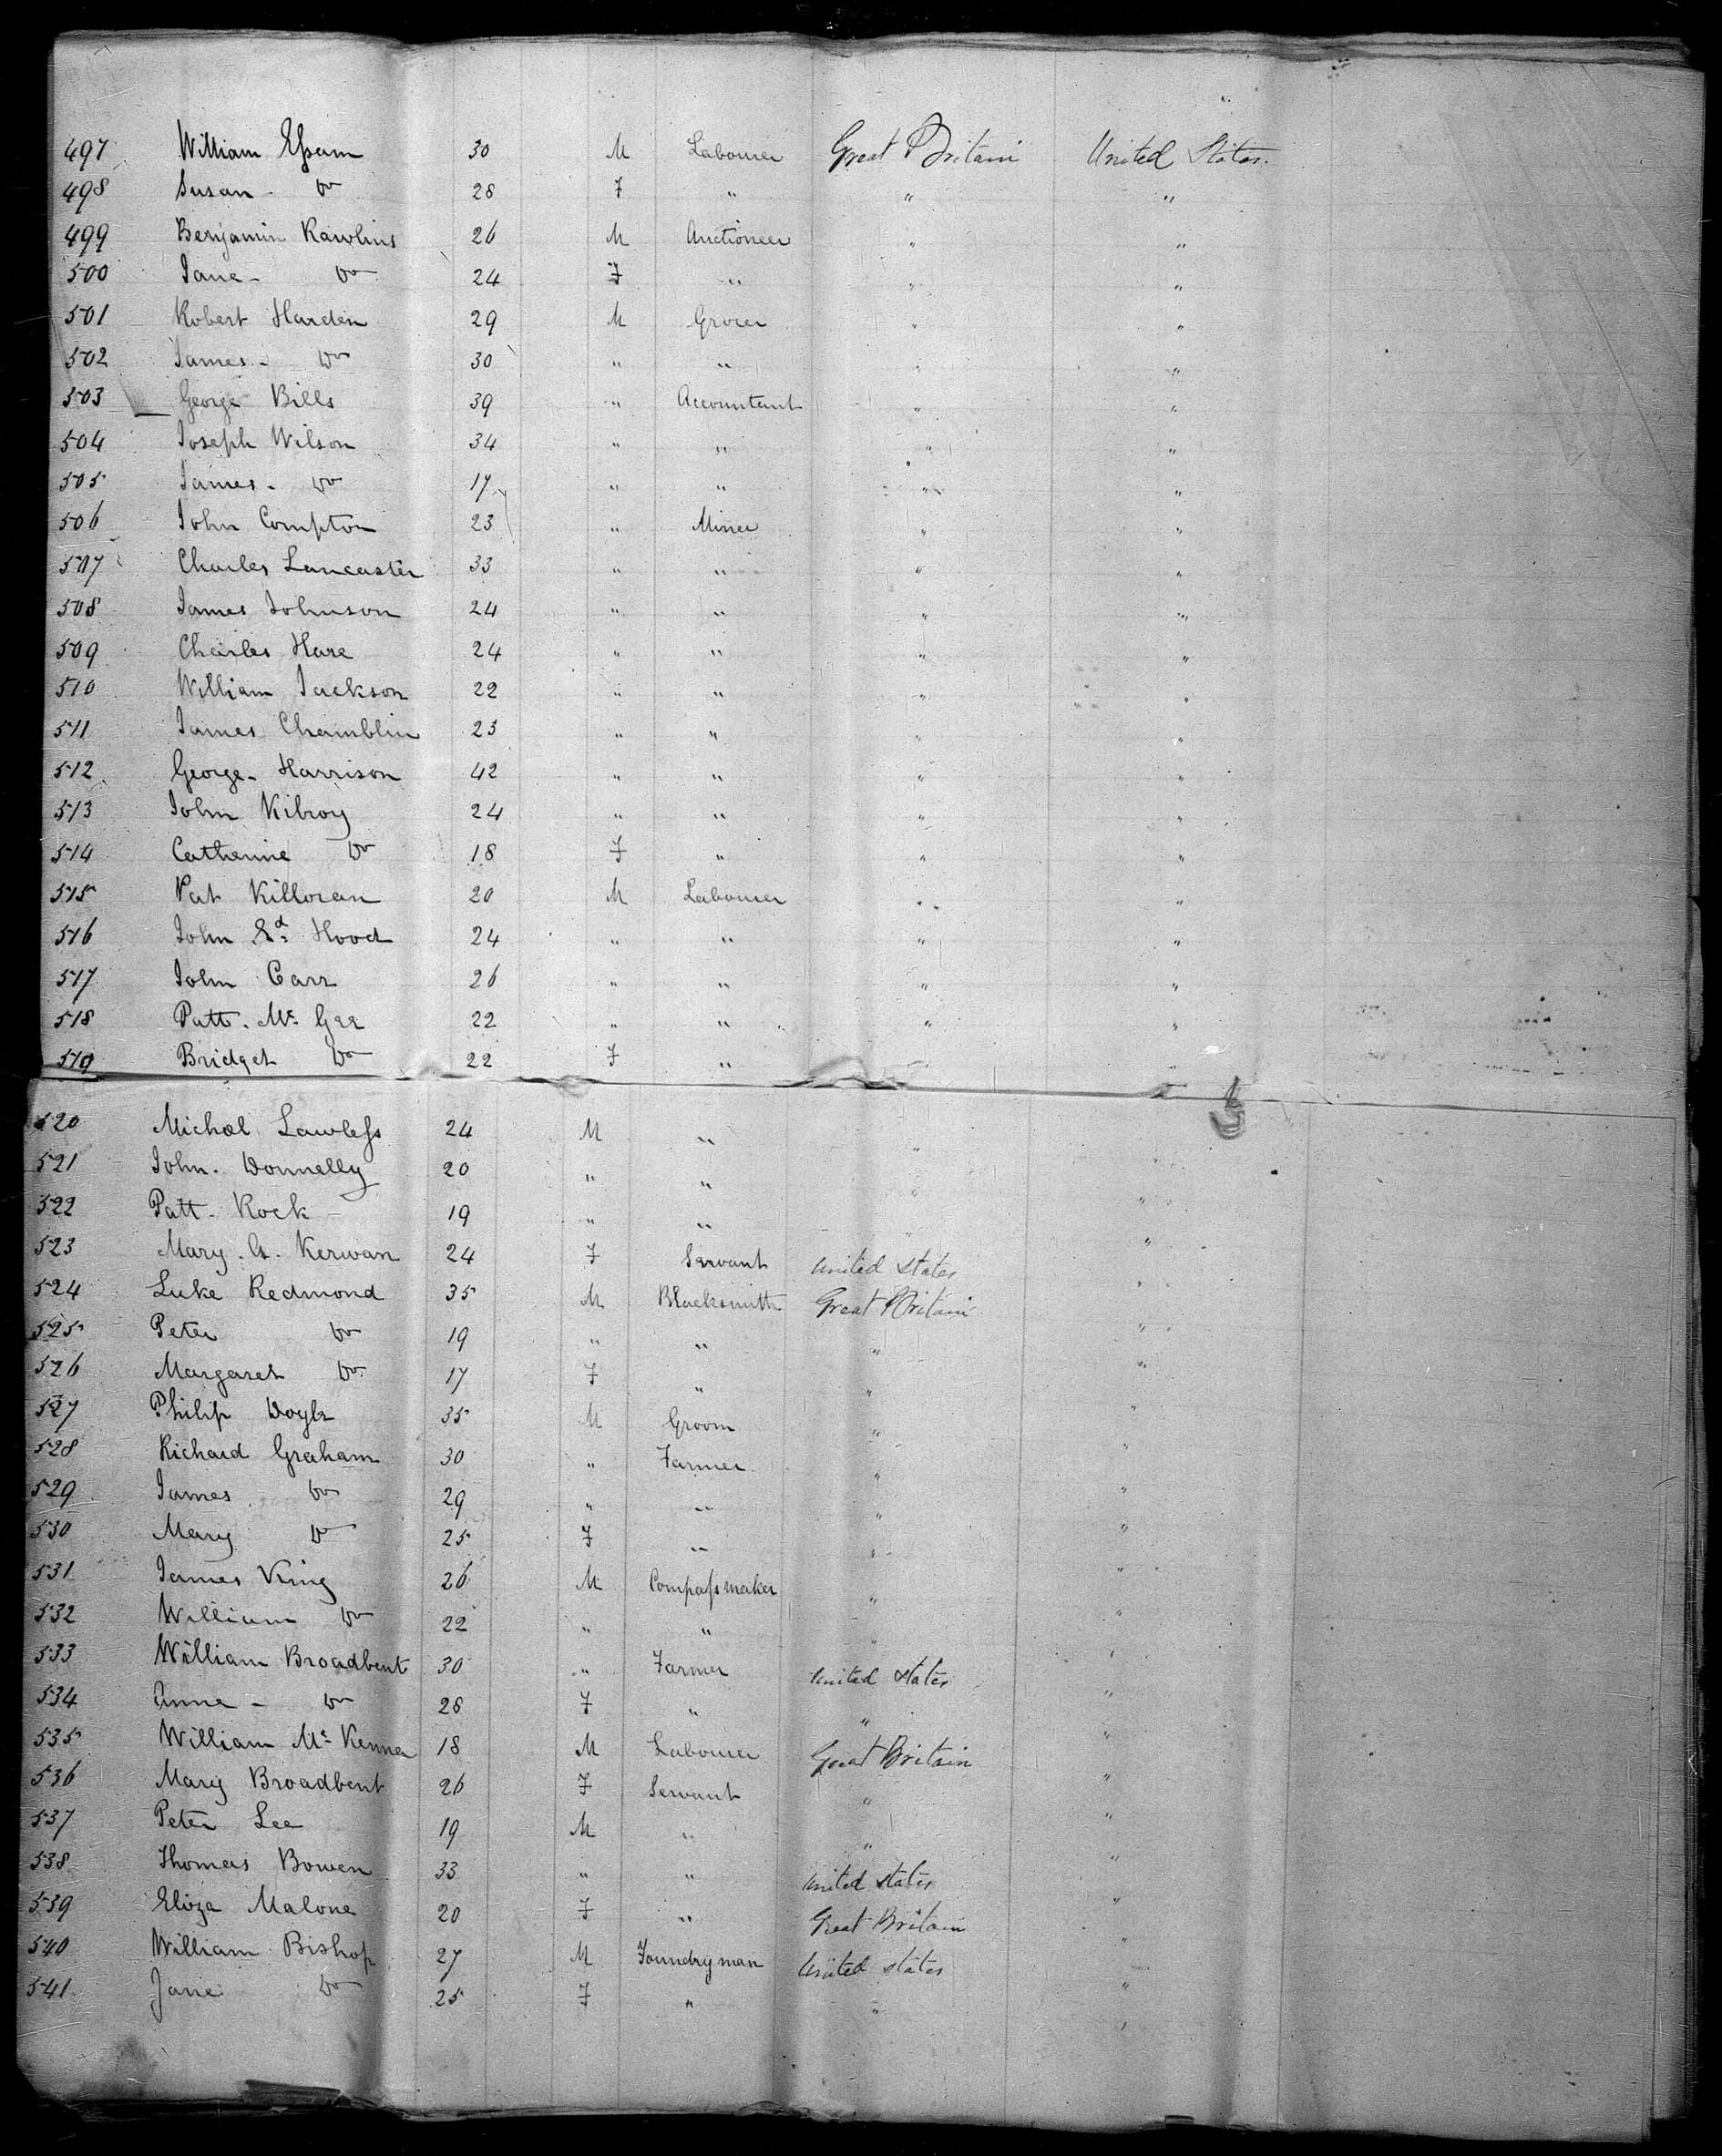 497 William Essam 30 M Labourer Great Britain United States.
498 Susan - Do 28 F " " "
499 Benjamin Rawlins 26 M Auctioneer " "
500 Jane - Do 24 F " " "
501 Robert Harden 29 M Grocer " "
502 James - Do 30 " " " "
503 George Bills 39 " Accountant " "
504 Joseph Wilson 34 " " " "
505 James - Do 17 " " " "
506 John Compton 23 " Miner " "
507 Charles Lancaster 33 " " " "
508 James Johnson 24 " " " "
509 Charles Hare 24 " " " "
510 William Jackson 22 " " " "
511 James Chamblin 23 " " " "
512 George - Harrison 42 " " " "
513 John Kilroy 24 " " " "
514 Catherine Do 18 F " " "
515 Pat Killoran 20 M Labourer " "
516 John Ed. Hood 24 " " " "
517 John Carr 26 " " " "
518 Patt. Mc Gee 22 " " " "
519 Bridget Do 22 F " " "
520 Michael Lawless 24 M " " "
521 John. Donnelly 20 " " " "
522 Patt - Rock 19 " " " "
523 Mary. A. Kerwan 24 F Servant United States "
524 Luke Redmond 35 M Blacksmith Great Britain "
525 Peter Do 19 " " " "
526 Margaret Do 17 F " " "
527 Philip Doyle 35 M Groom " "
528 Richard Graham 30 " Farmer " "
529 James Do 29 " " " "
530 Mary Do 25 F " " "
531 James King 26 M Compass maker " "
532 William Do 22 " " " "
533 William Broadbent 30 " Farmer United States "
534 Anne - Do 28 F " " "
535 William Mc Kenna 18 M Labourer Great Britain "
536 Mary Broadbent 26 F Servant " "
537 Peter Lee 19 M " " "
538 Thomas Bowen 33 " " United States "
539 Eliza Malone 20 F " Great Britain "
540 William Bishop 27 M Foundry man United States "
541 Jane Do 25 F " " "